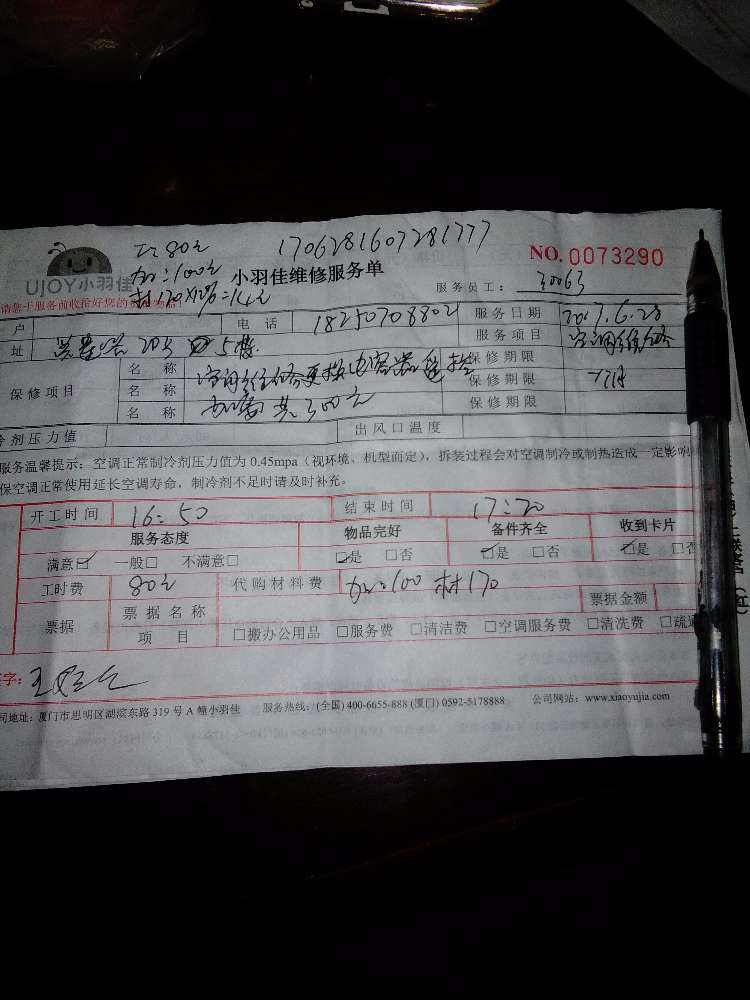 工:80元 1706281607281777
加:100元 小羽佳维修服务单 NO. 0073290
UJOY小羽佳
服务员工: 30063
请您于服务前收拾好您的
户 电话 18250708802 服务日期 2017.6.28
址 205 5楼 服务项目 空调维修
保修项目 名称 空调维修更换电容器 保修期限
名称 共300元 保修期限
名称 保修期限
冷剂压力值 出风口温度
服务温馨提示:空调正常制冷剂压力值为 0.45mpa(视环境、机型而定),拆装过程会对空调制冷或制热造成一定影响
保空调正常使用延长空调寿命,制冷剂不足时请及时补充。
开工时间 16:50 结束时间 17:20
服务态度 物品完好 备件齐全 收到卡片
满意☑ 一般□ 不满意□ ☑是 □否 ☑是 □否 ☑是 □否
工时费 80元 代购材料费 加:100 材170 票据金额
票据 票据名称
项目 □搬办公用品 □服务费 □清洁费 □空调服务费 □清洗费 □疏通
字:
司地址:厦门市思明区湖滨东路 319 号 A 幢小羽佳 服务热线:(全国) 400-6655-888 (厦门) 0592-5178888 公司网站:www.xiaoyujia.com